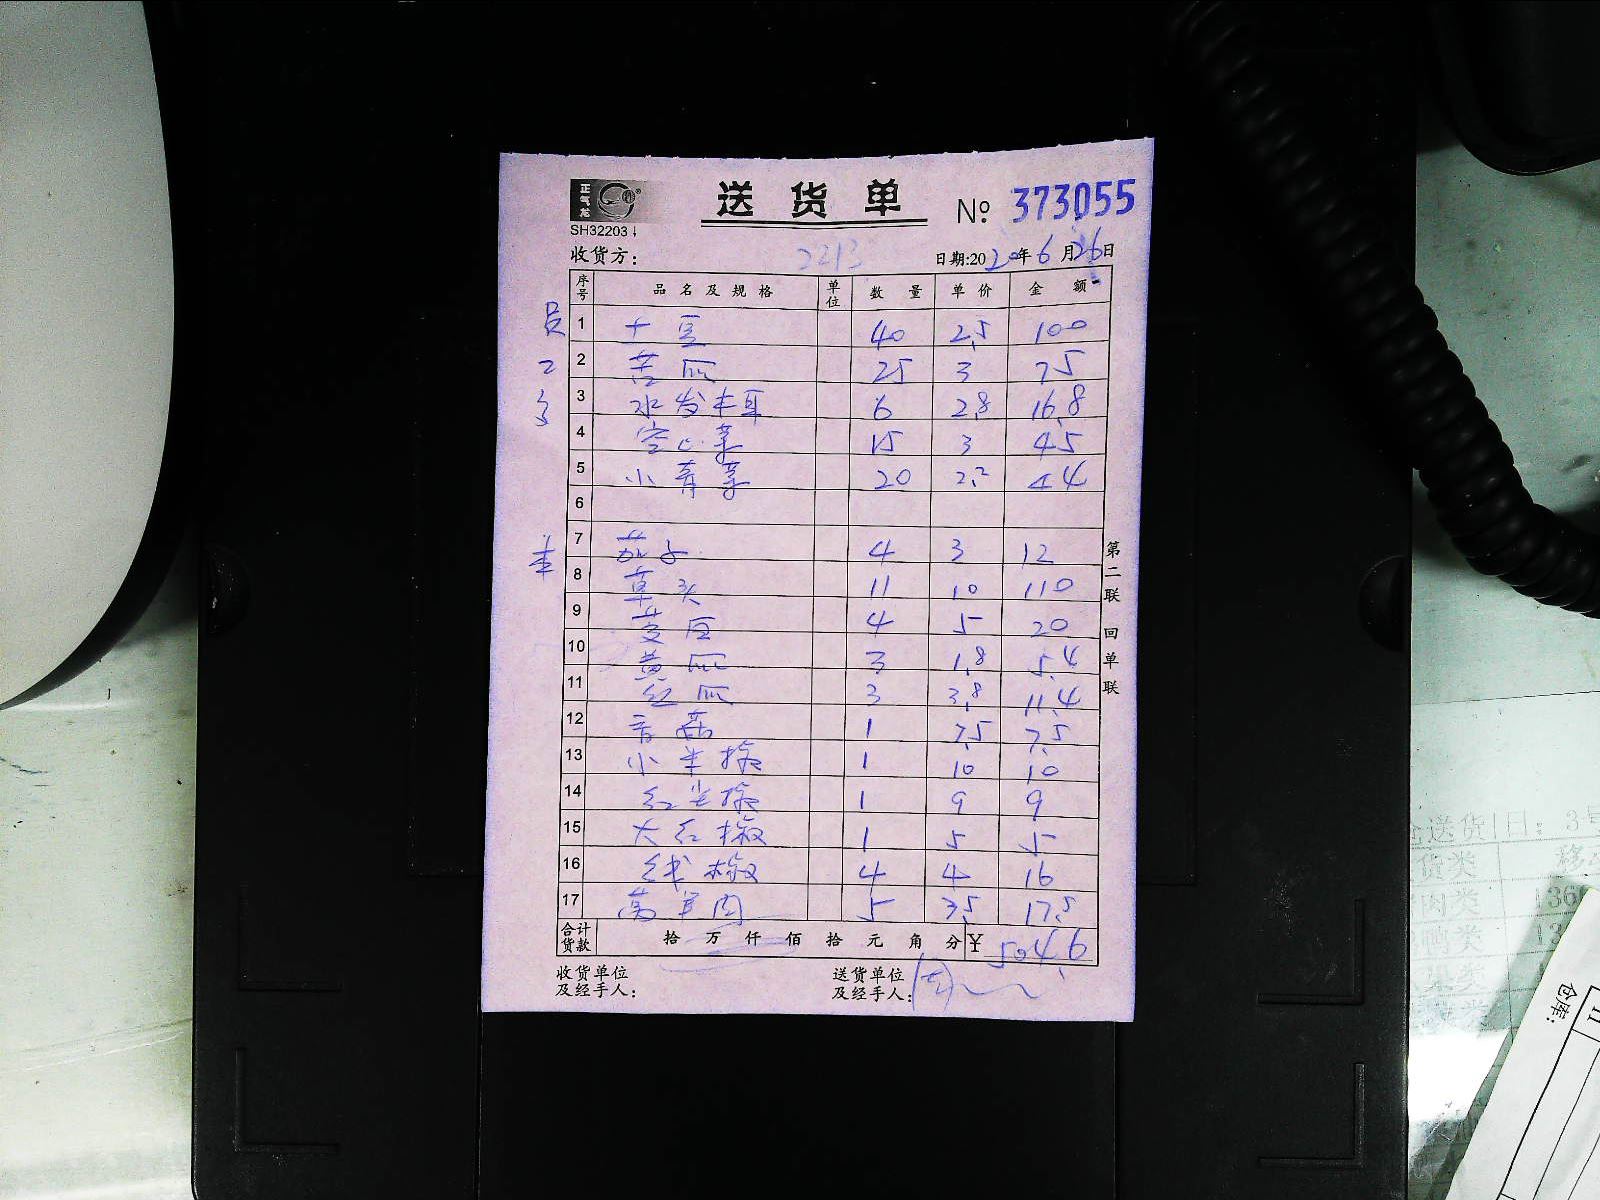 正气龙
送货单 № 373055
SH32203↓
收货方: 2213 日期:2020年6月26日
序号 品名及规格 单位 数量 单价 金额
员工
1 土豆 40 2.5 100
2 苦瓜 25 3 75
3 水发木耳 6 2.8 16.8
4 空心菜 15 3 45
5 小青菜 20 2.2 44
6
7 茄子 4 3 12
8 草头 11 10 110
9 芸豆 4 5 20
10 黄瓜 3 1.8 5.4
11 丝瓜 3 3.8 11.4
12 香菇 1 7.5 7.5
13 小米椒 1 10 10
14 红尖椒 1 9 9
15 大红椒 1 5 5
16 线椒 4 4 16
17 5 3.5 17.5
合计货款 拾 万 仟 佰 拾 元 角 分 ¥ 504.6
收货单位及经手人: 送货单位及经手人:
第二联 回单联
送货日: 3号
货类
肉类 136
类 13
类
仓库: